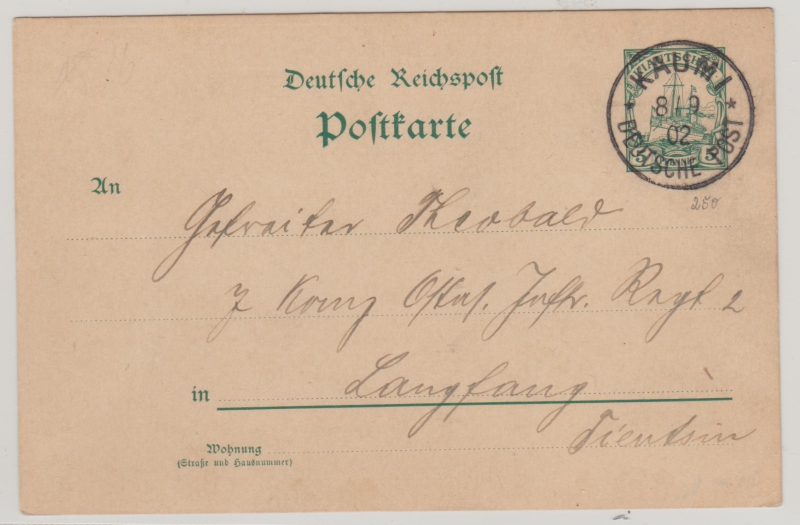 Deutsche Reichspost
Postkarte
KIAUTSCHOU
5 PFENNIG 5
KAUMI
8/9
02
* DEUTSCHE POST *
250
An
Gefreiter Theobald
7 Komp Ostas. Inftr. Regt 2
in Langfang
Tientsin
Wohnung
(Straße und Hausnummer)